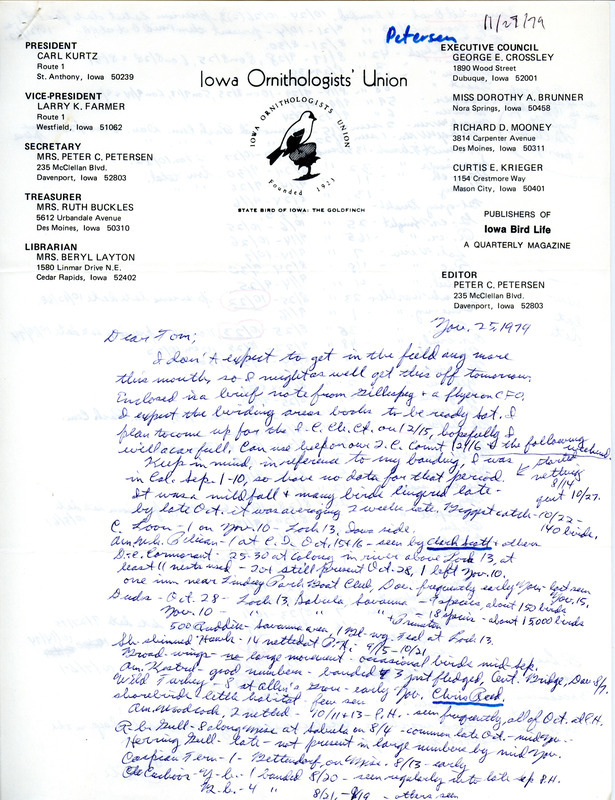 11/29/79
Petersen
PRESIDENT
CARL KURTZ
Route 1
St. Anthony, Iowa 50239
VICE-PRESIDENT
LARRY K. FARMER
Route 1
Westfield, Iowa 51062
SECRETARY
MRS. PETER C. PETERSEN
235 McClellan Blvd.
Davenport, Iowa 52803
TREASURER
MRS. RUTH BUCKLES
5612 Urbandale Avenue
Des Moines, Iowa 50310
LIBRARIAN
MRS. BERYL LAYTON
1580 Linmar Drive N.E.
Cedar Rapids, Iowa 52402
Iowa Ornithologists' Union
IOWA ORNITHOLOGISTS UNION
Founded 1923
STATE BIRD OF IOWA: THE GOLDFINCH
EXECUTIVE COUNCIL
GEORGE E. CROSSLEY
1890 Wood Street
Dubuque, Iowa 52001
MISS DOROTHY A. BRUNNER
Nora Springs, Iowa 50458
RICHARD D. MOONEY
3814 Carpenter Avenue
Des Moines, Iowa 50311
CURTIS E. KRIEGER
1154 Crestmore Way
Mason City, Iowa 50401
PUBLISHERS OF
Iowa Bird Life
A QUARTERLY MAGAZINE
EDITOR
PETER C. PETERSEN
235 McClellan Blvd.
Davenport, Iowa 52803
Nov. 25, 1979
Dear Tom;
I don't expect to get in the field any more
this month, so I might as well get this off tomorrow.
Enclosed is a brief note from Gillespey + a flyer on CFO.
I expect the birding areas books to be ready Sat. I
plan to come up for the I.C. Ch. Ct. on 12/15, hopefully I
will a car full. Can use help on our Q.C. Count 12/16 & the following weekend.
Keep in mind, in reference to my banding, I was
in Cal. Sep. 1-10, so have no data for that period.
started netting 8/14 quit 10/27.
It was a mild fall + many birds lingered late -
by late Oct. it was averaging 2 weeks late. Biggest catch - 10/22 - 140 birds.
C. Loon - 1 on Nov. 10 - Loch 13, Iowa side.
Am. Wh. Pelican - 1 at C.I. Oct. 15+16 - seen by Chuck Scott + others
D-c. Cormorant - 25-30 at colony in river above Lock 13, at
least 11 nests used - 20+ still present Oct. 28, 1 left Nov. 10.
one imm near Lindsay Park Boat Club, Dav. frequently early Nov - last seen Nov. 15.
Ducks - Oct. 28 - Loch 13, Sabula, Savanna - 9 species about 150 birds
Nov. 10 - " " " + Princeton - 18 species - about 15000 birds
500 Ruddies - Savanna area, 1 Bl-wg. Teal at Loch 13.
Sh-shinned Hawk - 14 netted at P.H. 9/15-10/21.
Broad-wings - no large movement - occasional birds mid-Sep.
Am. Kestrel - good numbers - banded 3 just fledged, Cent. Bridge, Dav 8/7.
Wild Turkey - at Allen's Grove - early Nov, Chris Reed.
shorebirds little habitat few seen
Am. Woodcock, 2 netted - 10/11+13 - P.H. - seen frequently, all of Oct. at P.H.
R-b. Gull - 8 along Miss at Sabula on 8/4 - common late Oct. - mid Nov.
Herring Gull - late - not present in large numbers by mid Nov.
Caspian Tern - 1 - Bettendorf, on Miss. 8/13 - early
Cuckoos - Y-b. - 1 banded 8/20 - seen regularly into late Sep. P.H.
B-b. - 4 " 8/21, - 9/19 - others seen